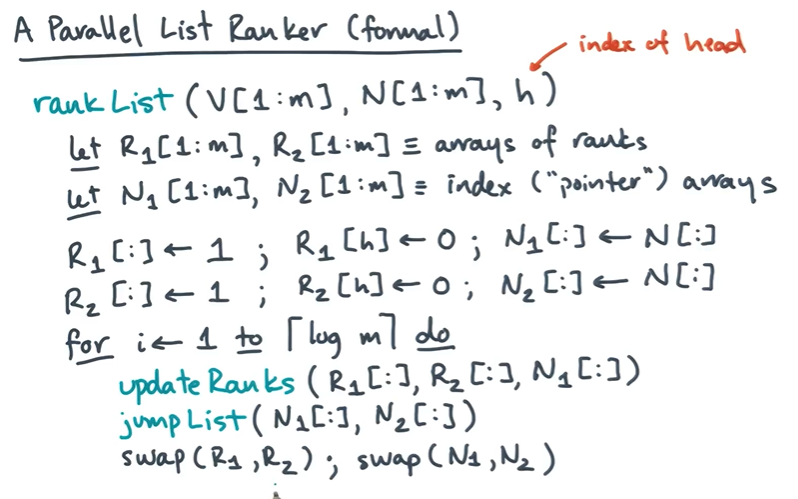 A Parallel List Ranker (formal)
index of head
rankList (V[1:m], N[1:m], h)
let R₁[1:m], R₂[1:m] ≡ arrays of ranks
let N₁[1:m], N₂[1:m] ≡ index ("pointer") arrays
R₁[:] ← 1 ; R₁[h] ← 0 ; N₁[:] ← N[:]
R₂[:] ← 1 ; R₂[h] ← 0 ; N₂[:] ← N[:]
for i ← 1 to ⌈log m⌉ do
updateRanks (R₁[:], R₂[:], N₁[:])
jumpList (N₁[:], N₂[:])
swap (R₁, R₂) ; swap (N₁, N₂)